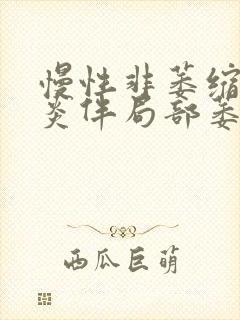 慢性非萎缩
炎伴局部萎
西瓜巨萌